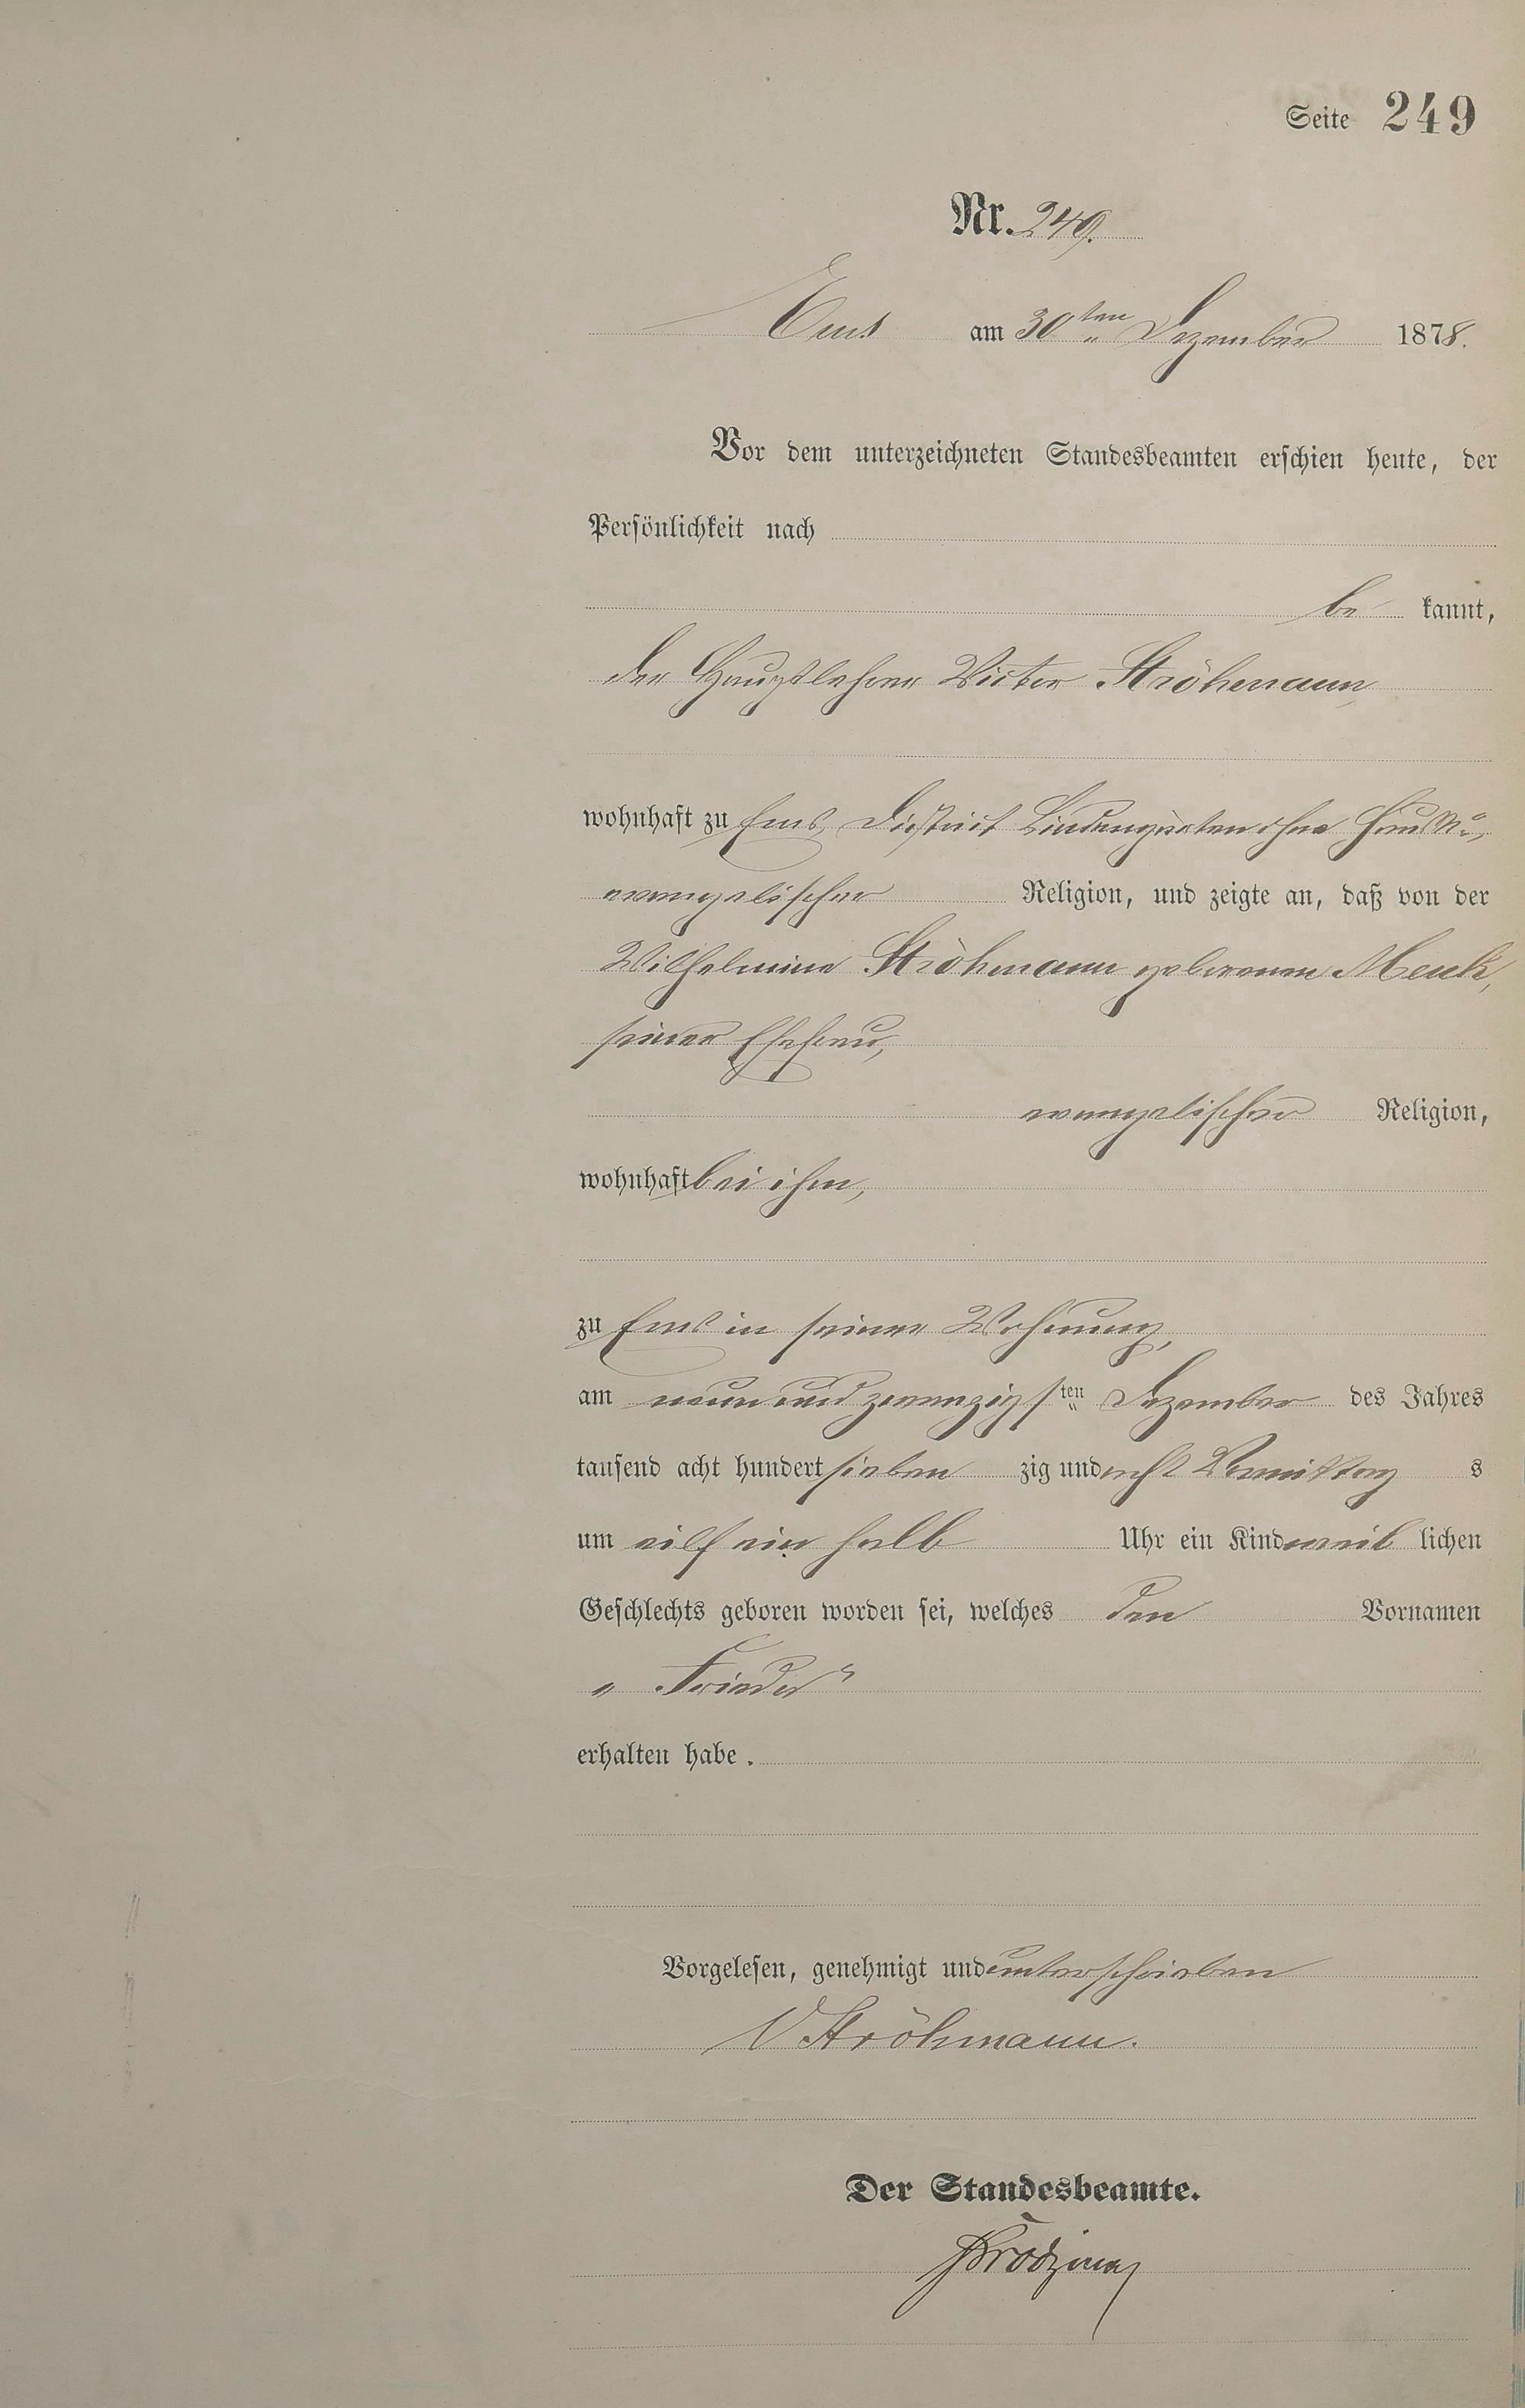 Seite 249
Nr. 249.
Ems am 30ten Dezember 1878.
Vor dem unterzeichneten Standesbeamten erschien heute, der
Persönlichkeit nach
be kannt,
der Hauptlehrer Victor Ströhmann,
wohnhaft zu Ems, District Lindengarten ohne Haus No.,
evangelischer Religion, und zeigte an, daß von der
Wilhelmine Ströhmann geborenen Menk,
seiner Ehefrau,
evangelischer Religion,
wohnhaft bei ihm,
zu Ems in seiner Wohnung,
am neunundzwanzigsten Dezember des Jahres
tausend acht hundert sieben zig und acht Vormittag s
um eilf ein halb Uhr ein Kind weib lichen
Geschlechts geboren worden sei, welches den Vornamen
„Frieda“
erhalten habe.
Vorgelesen, genehmigt und unterschrieben
V Ströhmann.
Der Standesbeamte.